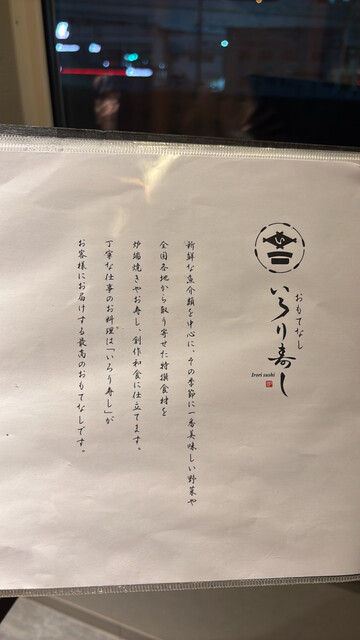 おもてなし
いろり寿し
Irori sushi
新鮮な魚介類を中心に、その季節に一番美味しい野菜や
全国各地から取り寄せた特撰食材を
炉端焼きやお寿し、創作和食に仕立てます。
丁寧な仕事のお料理は「いろり寿し」が
お客様にお届けする最高のおもてなしです。